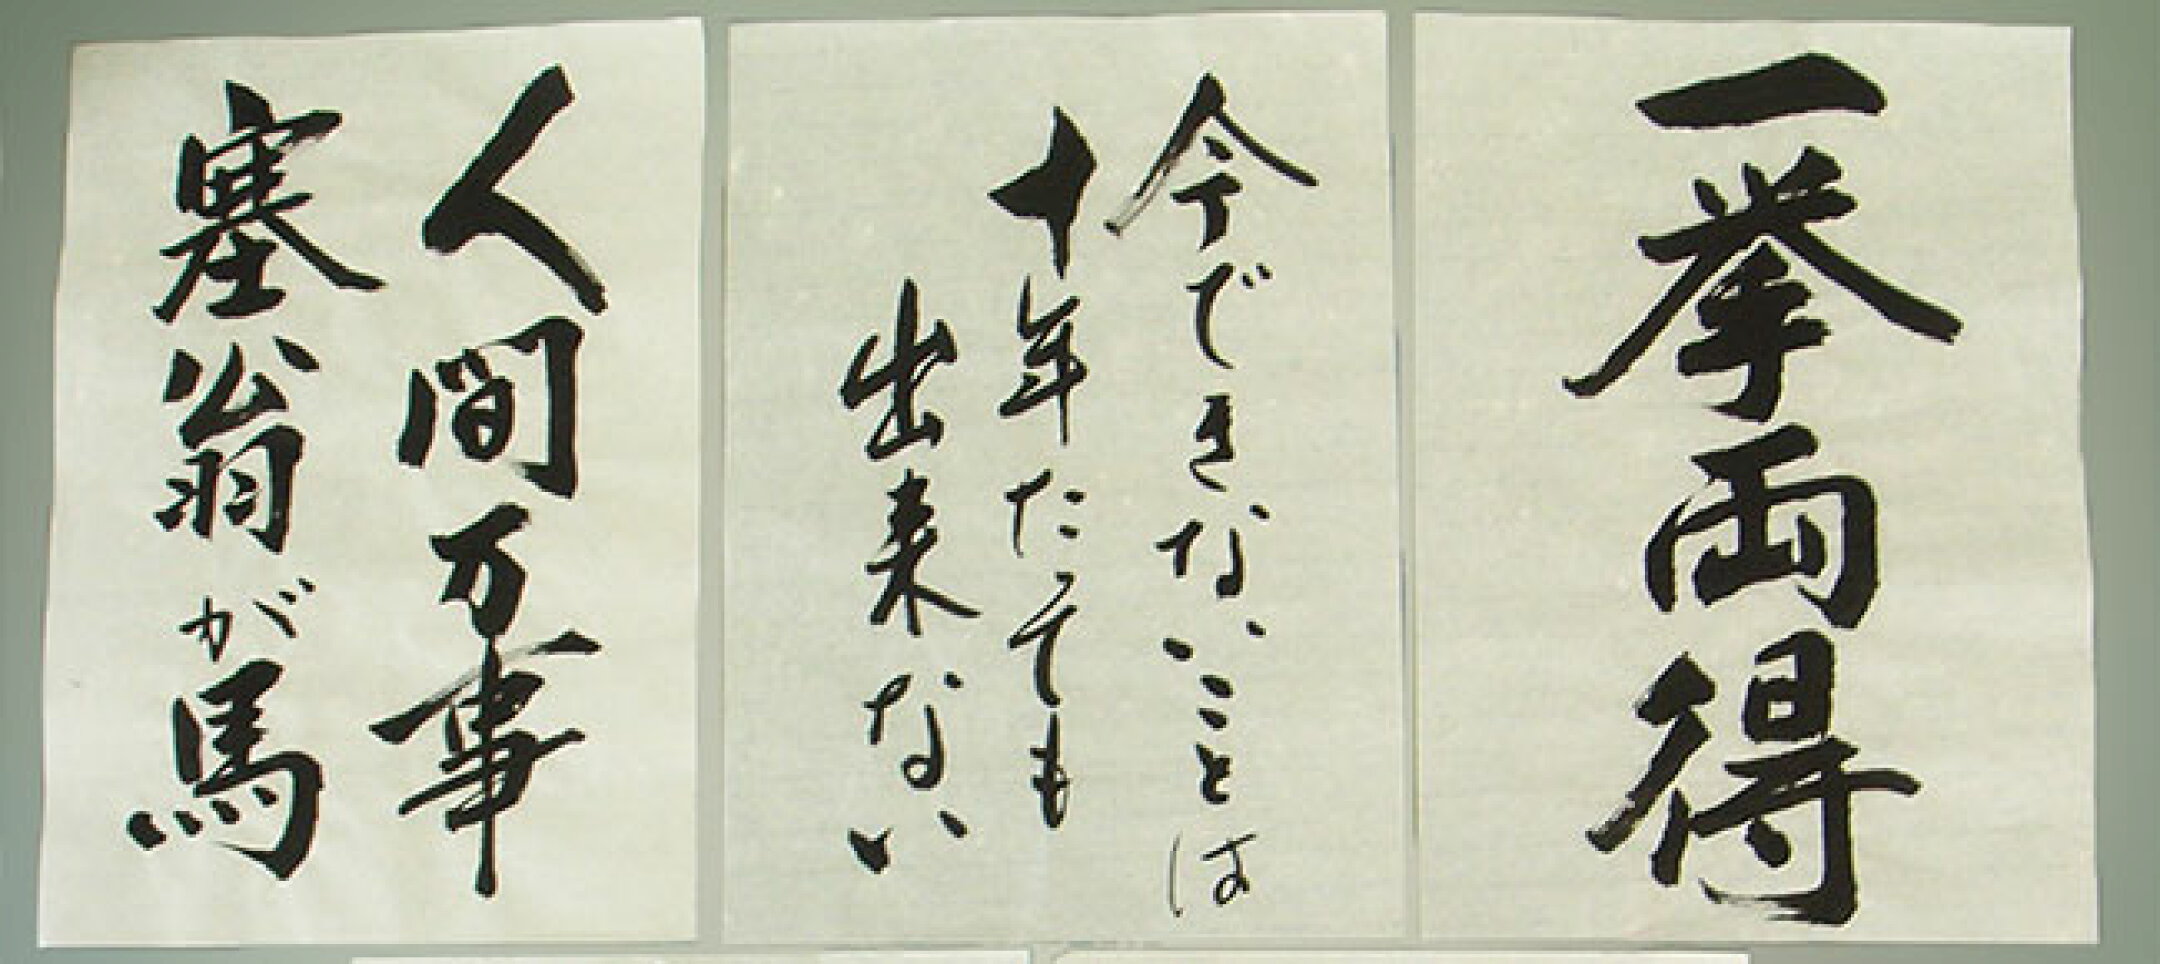 一挙両得
今できないことは
十年たても
出来ない
人間万事
塞翁が馬